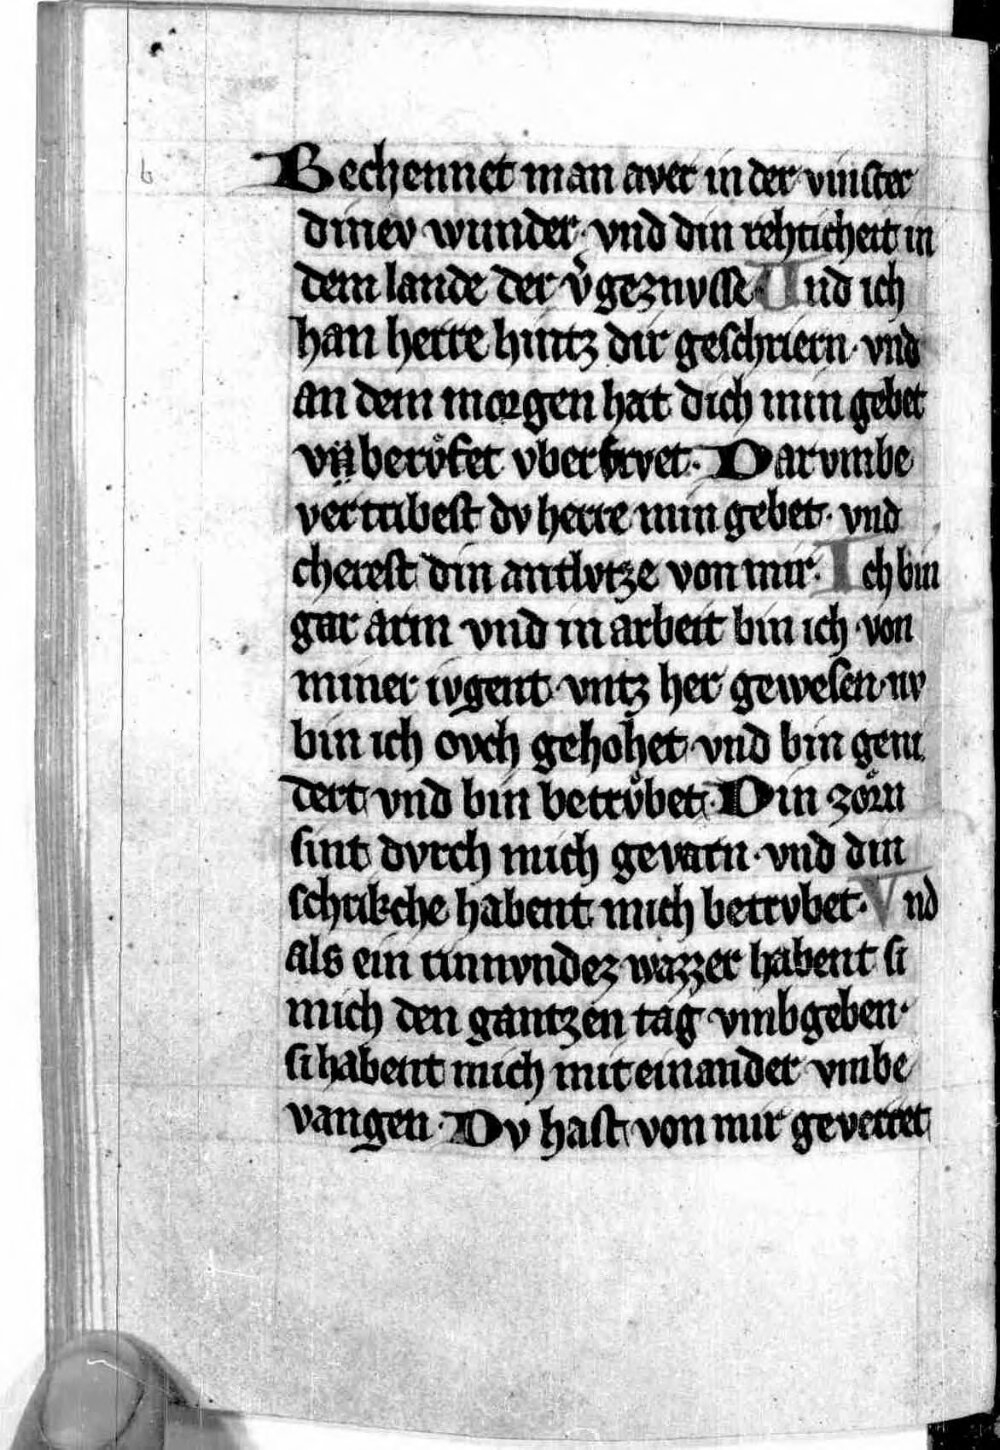 Bechennet man aver in der vinster
dinev wunder· vnd din rehticheit in
dem lande der v̾geznvsse· Vnd ich
han herre hintz dir geschriern· vnd
an dem morgen hat dich min gebet
vber Darvmbe
vertribest dv herre min gebet· vnd
cherest din antlvtze von mir· Ich bin
gar arm vnd in arbeit bin ich von
miner ivgent vntz her gewesen· nv
bin ich ovch gehohet vnd bin geni
dert vnd bin betrvͦbet· Din zoͤrn
sint dvrch mich gevarn· vnd din
schrikche habent mich betrvbet· Vnd
als ein rinnvndez wazzer habent si
mich den gantzen tag vmbgeben·
si habent mich mit einander vmbe
vangen· Dv hast von mir geverret